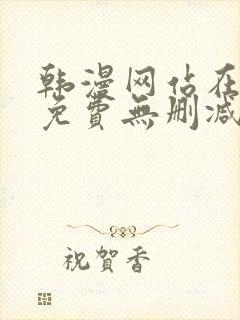 韩漫网站在
免費無删减
祝賀香